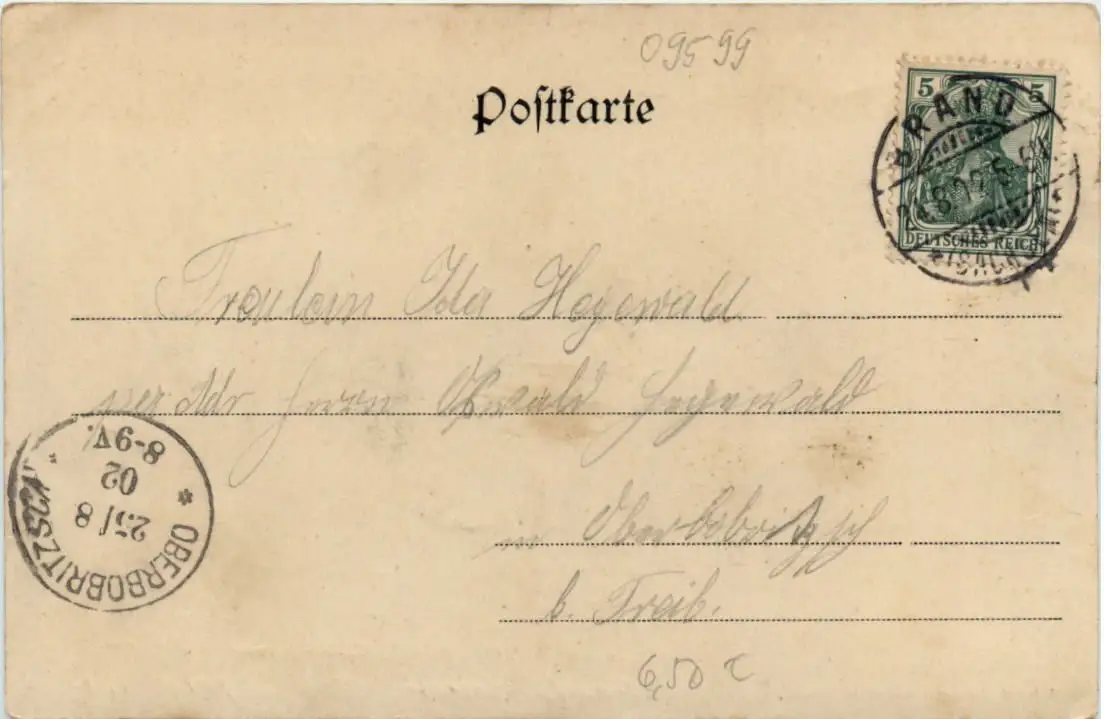 09599
Postkarte
5 5
DEUTSCHES REICH
BRAND
24.8.02.5-6N.
*(SACHSEN)*
Fräulein Ida Hegewald
per Adr Herrn Oswald Hegewald
in Oberbobritzsch
b. Freib.
* OBERBOBRITZSCH *
25/8
02
8-9V.
6,50